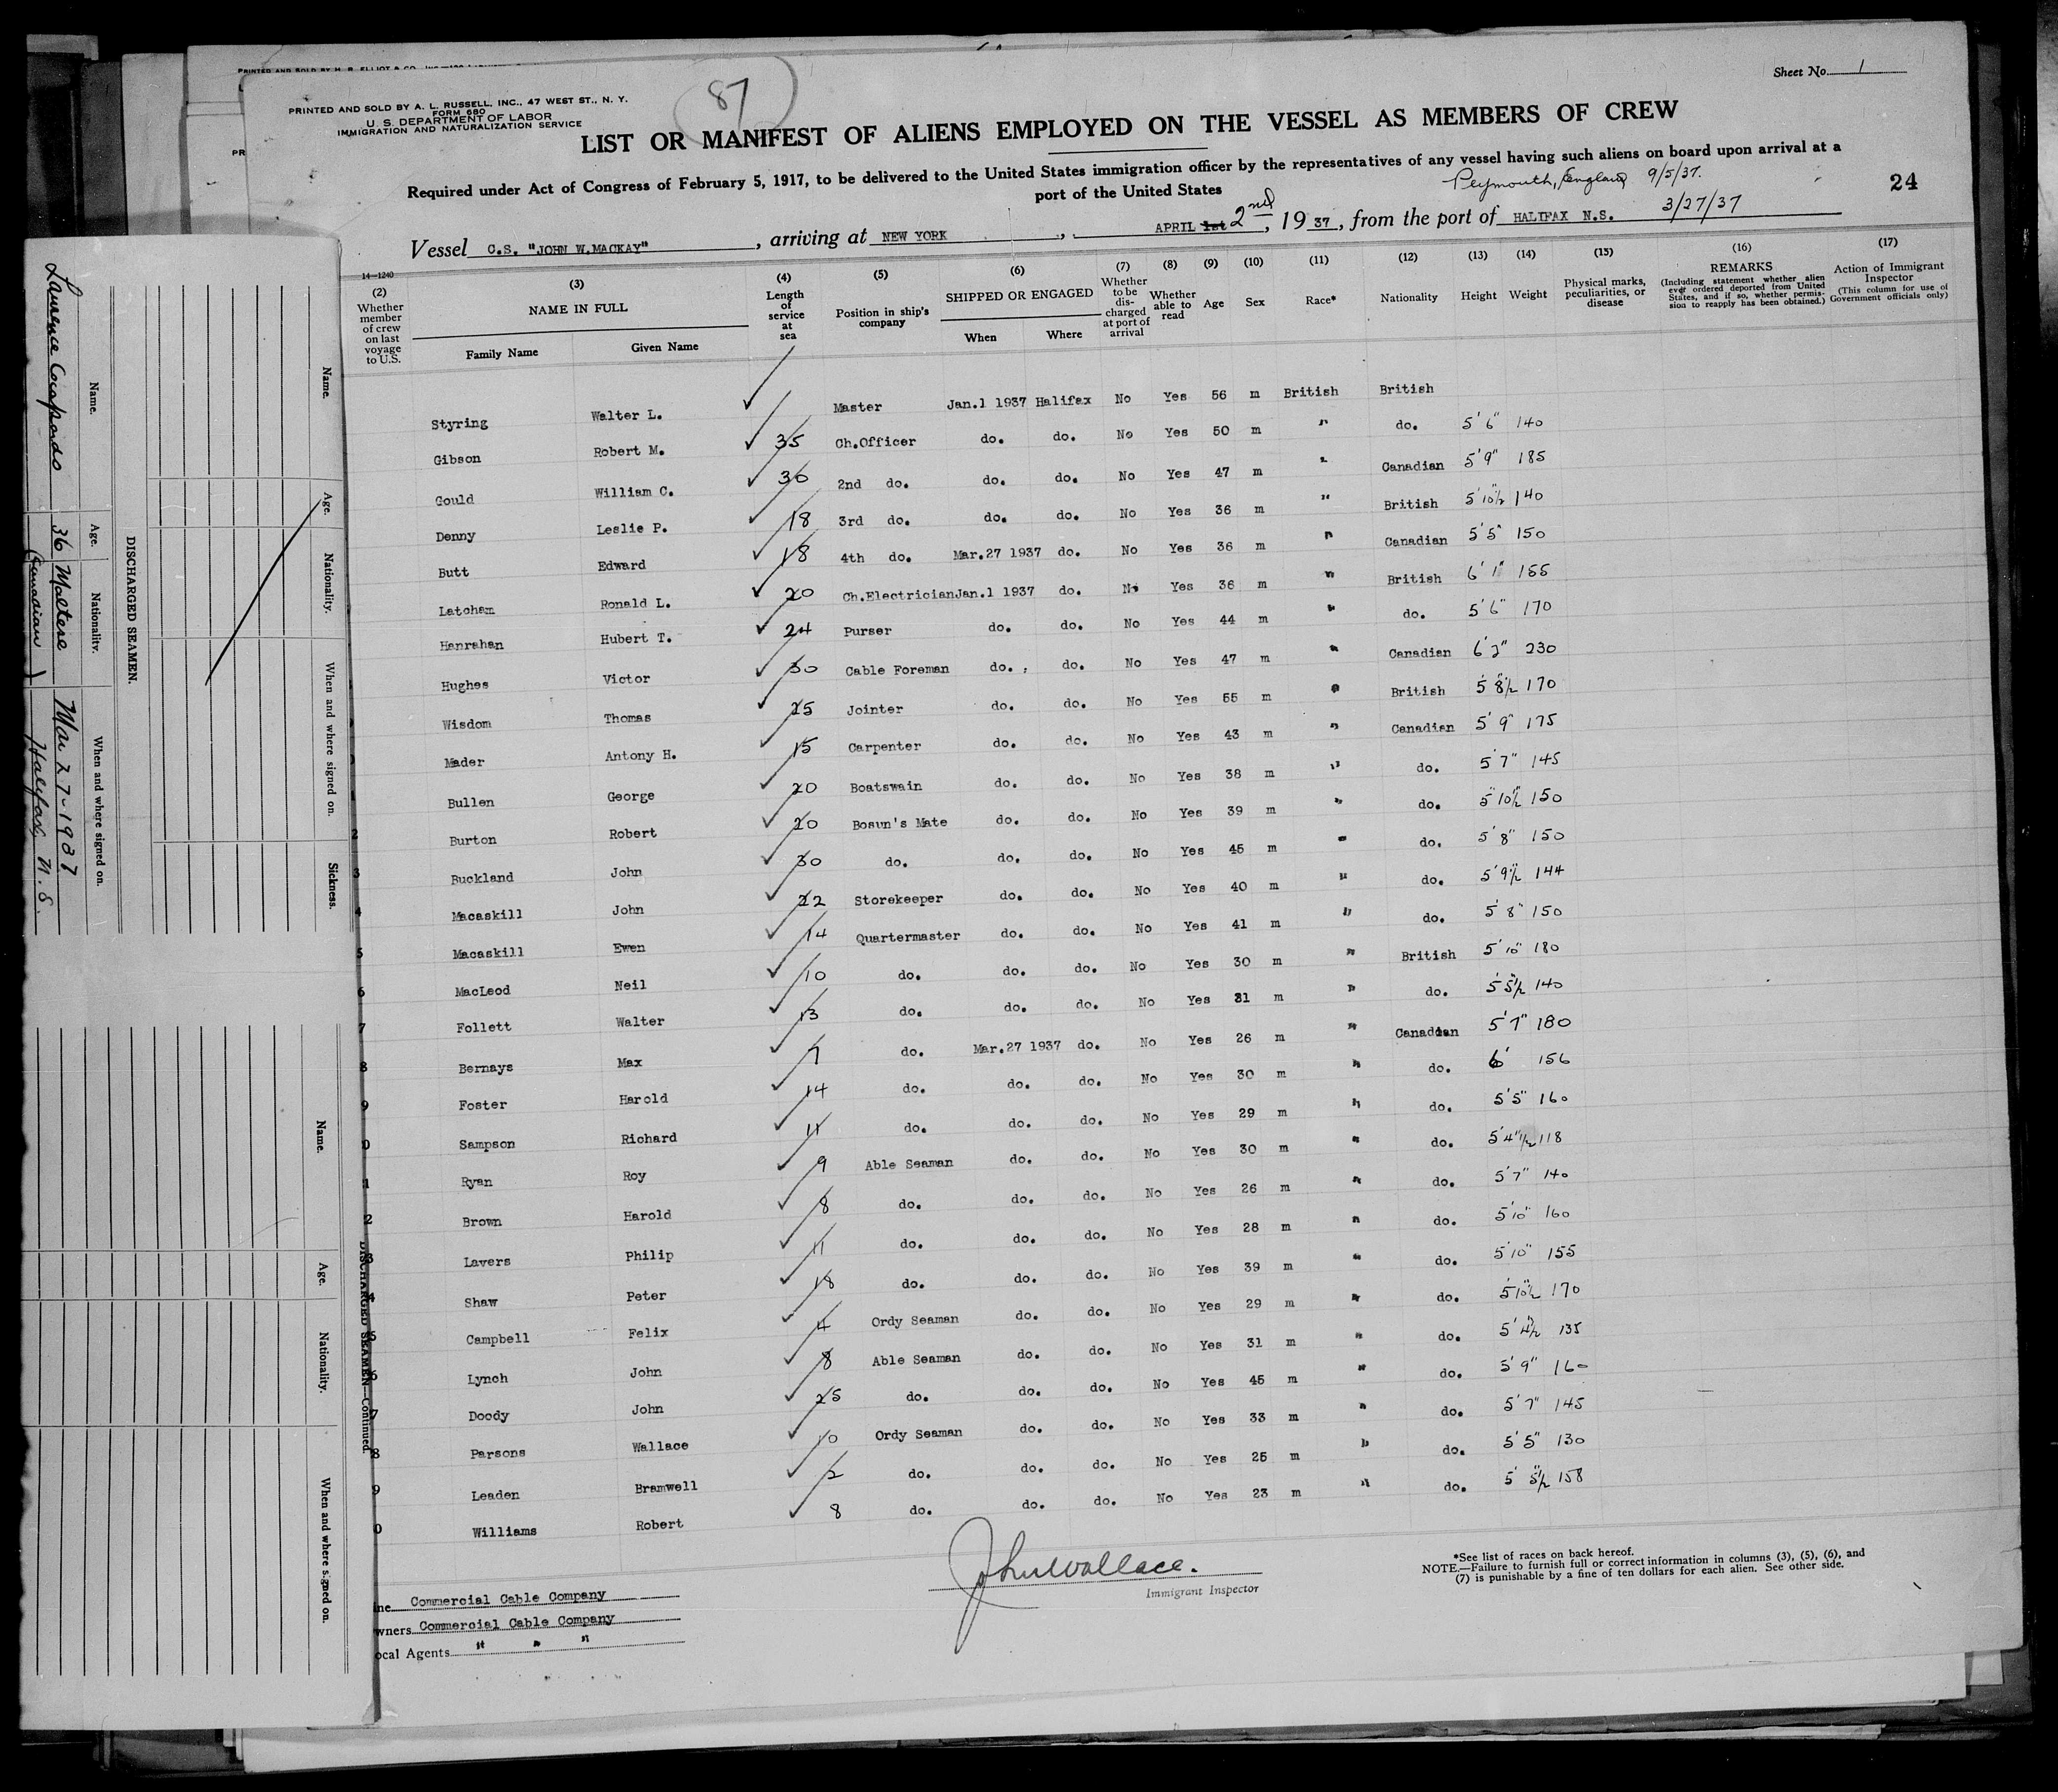 PRINTED AND SOLD BY A. L. RUSSELL, INC., 47 WEST ST., N. Y.
FORM 680
U. S. DEPARTMENT OF LABOR
IMMIGRATION AND NATURALIZATION SERVICE
87
Sheet No. 1
LIST OR MANIFEST OF ALIENS EMPLOYED ON THE VESSEL AS MEMBERS OF CREW
Required under Act of Congress of February 5, 1917, to be delivered to the United States immigration officer by the representatives of any vessel having such aliens on board upon arrival at a
port of the United States
Plymouth, England 9/5/37.
24
Vessel C.S. "JOHN W.MACKAY", arriving at NEW YORK, APRIL 1st 2nd, 1937, from the port of HALIFAX N.S. 3/27/37
14—1240
(2) Whether member of crew on last voyage to U.S.
(3) NAME IN FULL
Family Name Given Name
(4) Length of service at sea
(5) Position in ship's company
(6) SHIPPED OR ENGAGED
When Where
(7) Whether to be discharged at port of arrival
(8) Whether able to read
(9) Age
(10) Sex
(11) Race*
(12) Nationality
(13) Height
(14) Weight
(15) Physical marks, peculiarities, or disease
(16) REMARKS (Including statement whether alien ever ordered deported from United States, and if so, whether permission to reapply has been obtained.)
(17) Action of Immigrant Inspector (This column for use of Government officials only)
Styring Walter L. ✓ Master Jan.1 1937 Halifax No Yes 56 m British British
Gibson Robert M. ✓ 35 Ch.Officer do. do. No Yes 50 m " do. 5'6" 140
Gould William C. ✓ 30 2nd do. do. do. No Yes 47 m " Canadian 5'9" 185
Denny Leslie P. ✓ 18 3rd do. do. do. No Yes 36 m " British 5'10½ 140
Butt Edward ✓ 18 4th do. Mar.27 1937 do. No Yes 36 m " Canadian 5'5" 150
Latcham Ronald L. ✓ 20 Ch.Electrician Jan.1 1937 do. No Yes 36 m " British 6'1" 155
Hanrahan Hubert T. ✓ 24 Purser do. do. No Yes 44 m " do. 5'6" 170
Hughes Victor ✓ 30 Cable Foreman do. do. No Yes 47 m " Canadian 6'2" 230
Wisdom Thomas ✓ 25 Jointer do. do. No Yes 55 m " British 5'8½ 170
Mader Antony H. ✓ 15 Carpenter do. do. No Yes 43 m " Canadian 5'9" 175
Bullen George ✓ 20 Boatswain do. do. No Yes 38 m " do. 5'7" 145
Burton Robert ✓ 20 Bosun's Mate do. do. No Yes 39 m " do. 5'10½ 150
Buckland John ✓ 30 do. do. do. No Yes 45 m " do. 5'8" 150
Macaskill John ✓ 22 Storekeeper do. do. No Yes 40 m " do. 5'9½ 144
Macaskill Ewen ✓ 14 Quartermaster do. do. No Yes 41 m " do. 5'8" 150
MacLeod Neil ✓ 10 do. do. do. No Yes 30 m " British 5'10" 180
Follett Walter ✓ 13 do. do. do. No Yes 31 m " do. 5'5½ 140
Bernays Max ✓ 7 do. Mar.27 1937 do. No Yes 26 m " Canadian 5'7" 180
Foster Harold ✓ 14 do. do. do. No Yes 30 m " do. 6' 156
Sampson Richard ✓ 11 do. do. do. No Yes 29 m " do. 5'5" 160
Ryan Roy ✓ 9 Able Seaman do. do. No Yes 30 m " do. 5'4"½ 118
Brown Harold ✓ 8 do. do. do. No Yes 26 m " do. 5'7" 140
Lavers Philip ✓ 11 do. do. do. No Yes 28 m " do. 5'10" 160
Shaw Peter ✓ 18 do. do. do. No Yes 39 m " do. 5'10" 155
Campbell Felix ✓ 4 Ordy Seaman do. do. No Yes 29 m " do. 5'10½ 170
Lynch John ✓ 8 Able Seaman do. do. No Yes 31 m " do. 5'4½ 135
Doody John ✓ 25 do. do. do. No Yes 45 m " do. 5'9" 160
Parsons Wallace ✓ 10 Ordy Seaman do. do. No Yes 33 m " do. 5'7" 145
Leaden Bramwell ✓ 2 do. do. do. No Yes 25 m " do. 5'5" 130
Williams Robert ✓ 8 do. do. do. No Yes 23 m " do. 5'5½ 158
John Wallace.
Immigrant Inspector
*See list of races on back hereof.
NOTE.—Failure to furnish full or correct information in columns (3), (5), (6), and
(7) is punishable by a fine of ten dollars for each alien. See other side.
ine Commercial Cable Company
wners Commercial Cable Company
ocal Agents " " "
DISCHARGED SEAMEN.
Name. Age. Nationality. When and where signed on.
36 Maltese Mar 27-1937
(Canadian) Halifax, N.S.
Name. Age. Nationality. When and where signed on. Sickness.
DISCHARGED SEAMEN—Continued.
Name. Age. Nationality. When and where signed on.